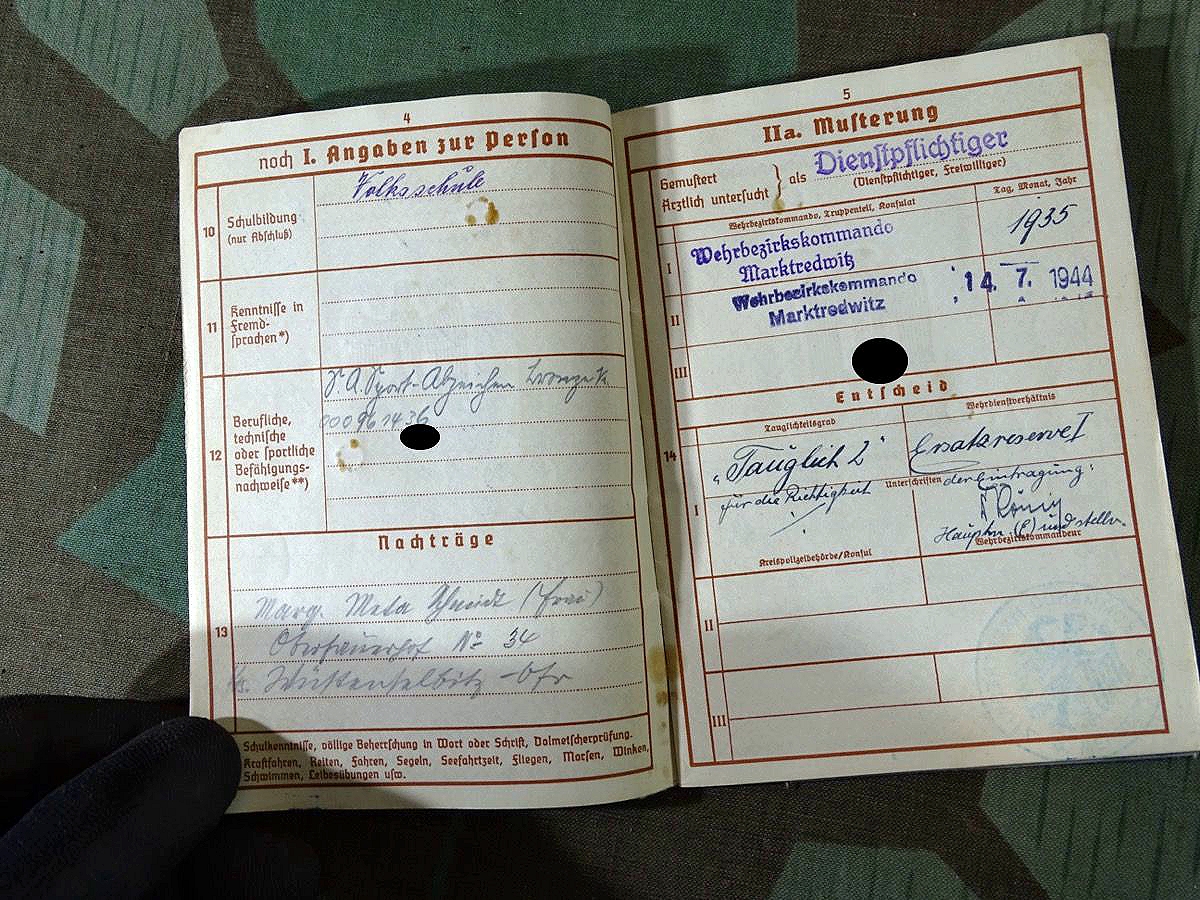 4
noch I. Angaben zur Person
10
Schulbildung
(nur Abschluß)
Volksschule
11
Kenntnisse in
Fremd-
sprachen*)
12
Berufliche,
technische
oder sportliche
Befähigungs-
nachweise**)
S.A. Sport-Abzeichen Bronze
000961436
Nachträge
13
Marg. Meta Schmidt (Frau)
No 34
Wüstenselbitz Ofr
Schulkenntnisse, völlige Beherrschung in Wort oder Schrift, Dolmetscherprüfung.
Kraftfahren, Reiten, Fahren, Segeln, Seefahrtzeit, Fliegen, Morsen, Winken,
Schwimmen, Leibesübungen usw.
5
IIa. Musterung
Gemustert
Ärztlich untersucht
als Dienstpflichtiger
(Dienstpflichtiger, Freiwilliger)
Wehrbezirkskommando, Truppenteil, Konsulat
Tag, Monat, Jahr
I
Wehrbezirkskommando
Marktredwitz
1935
II
Wehrbezirkskommando
Marktredwitz
14. 7. 1944
III
Entscheid
14
Tauglichkeitsgrad
Wehrdienstverhältnis
I
"Tauglich 2"
Ersatzreserve I
für die Richtigkeit
Unterschriften
der Eintragung"
König
Hauptm. (E) und stellv.
Kreispolizeibehörde/Konsul
Wehrbezirkskommandeur
II
III